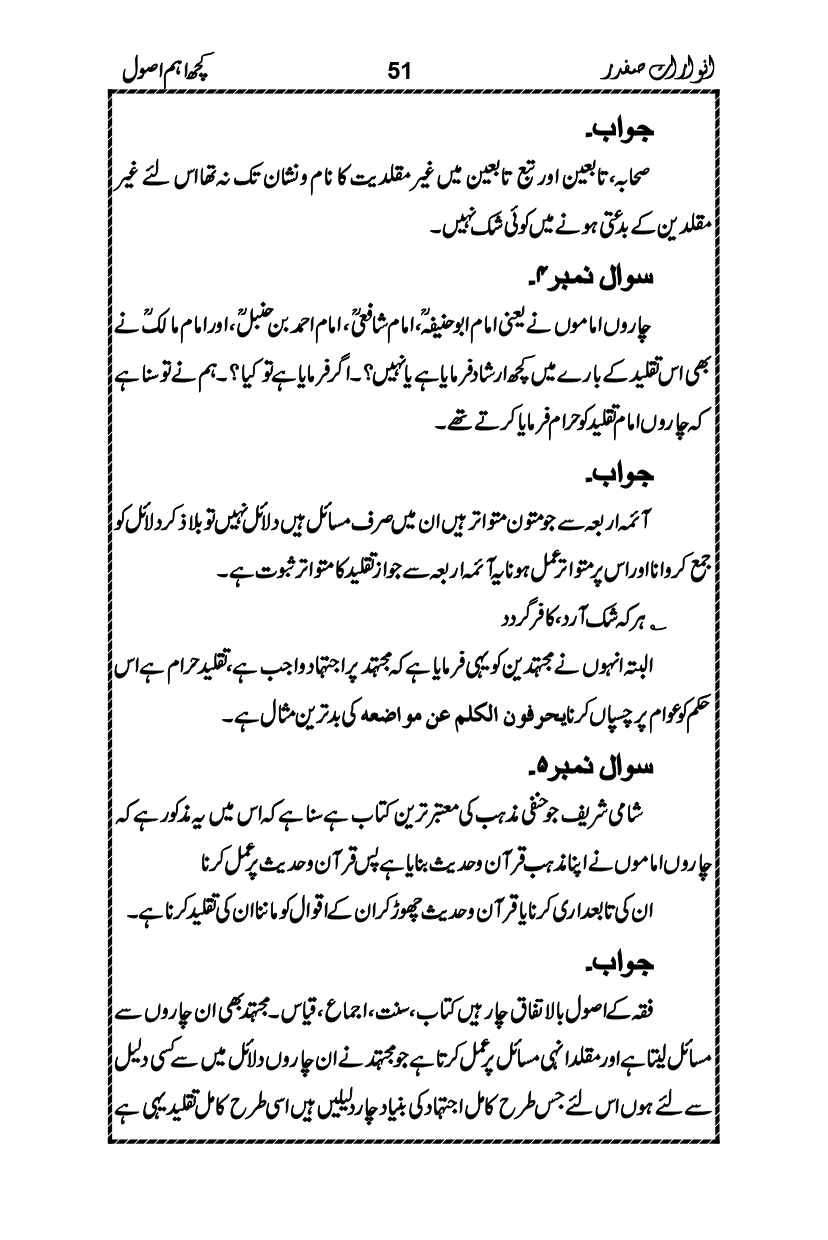 انوارات صفدر 51 کچھ اہم اصول
جواب۔
صحابہ، تابعین اور تبع تابعین میں غیر مقلدیت کا نام و نشان تک نہ تھا اس لئے غیر
مقلدین کے بدعتی ہونے میں کوئی شک نہیں۔
سوال نمبر ۴۔
چاروں اماموں نے یعنی امام ابوحنیفہؒ، امام شافعیؒ، امام احمد بن حنبلؒ، اور امام مالکؒ نے
بھی اس تقلید کے بارے میں کچھ ارشاد فرمایا ہے یا نہیں؟۔ اگر فرمایا ہے تو کیا؟۔ ہم نے تو سنا ہے
کہ چاروں امام تقلید کو حرام فرمایا کرتے تھے۔
جواب۔
آئمہ اربعہ سے جو متون متواتر ہیں ان میں صرف مسائل ہیں دلائل نہیں تو بلا ذکر دلائل کو
جمع کروانا اور اس پر متواتر عمل ہونا یہ آئمہ اربعہ سے جواز تقلید کا متواتر ثبوت ہے۔
؎ ہر کہ شک آرد، کافر گردد
البتہ انہوں نے مجتہدین کو یہی فرمایا ہے کہ مجتہد پر اجتہاد واجب ہے، تقلید حرام ہے اس
حکم کو عوام پر چسپاں کرنا یحرفون الکلم عن مواضعه کی بدترین مثال ہے۔
سوال نمبر ۵۔
شامی شریف جو حنفی مذہب کی معتبر ترین کتاب ہے سنا ہے کہ اس میں یہ مذکور ہے کہ
چاروں اماموں نے اپنا مذہب قرآن وحدیث بنایا ہے پس قرآن وحدیث پر عمل کرنا
ان کی تابعداری کرنا یا قرآن وحدیث چھوڑ کر ان کے اقوال کو ماننا ان کی تقلید کرنا ہے۔
جواب۔
فقہ کے اصول بالاتفاق چار ہیں کتاب، سنت، اجماع، قیاس۔ مجتہد بھی ان چاروں سے
مسائل لیتا ہے اور مقلد انہی مسائل پر عمل کرتا ہے جو مجتہد نے ان چاروں دلائل میں سے کسی دلیل
سے لئے ہوں اس لئے جس طرح کامل اجتہاد کی بنیاد چار دلیلیں ہیں اسی طرح کامل تقلید یہی ہے